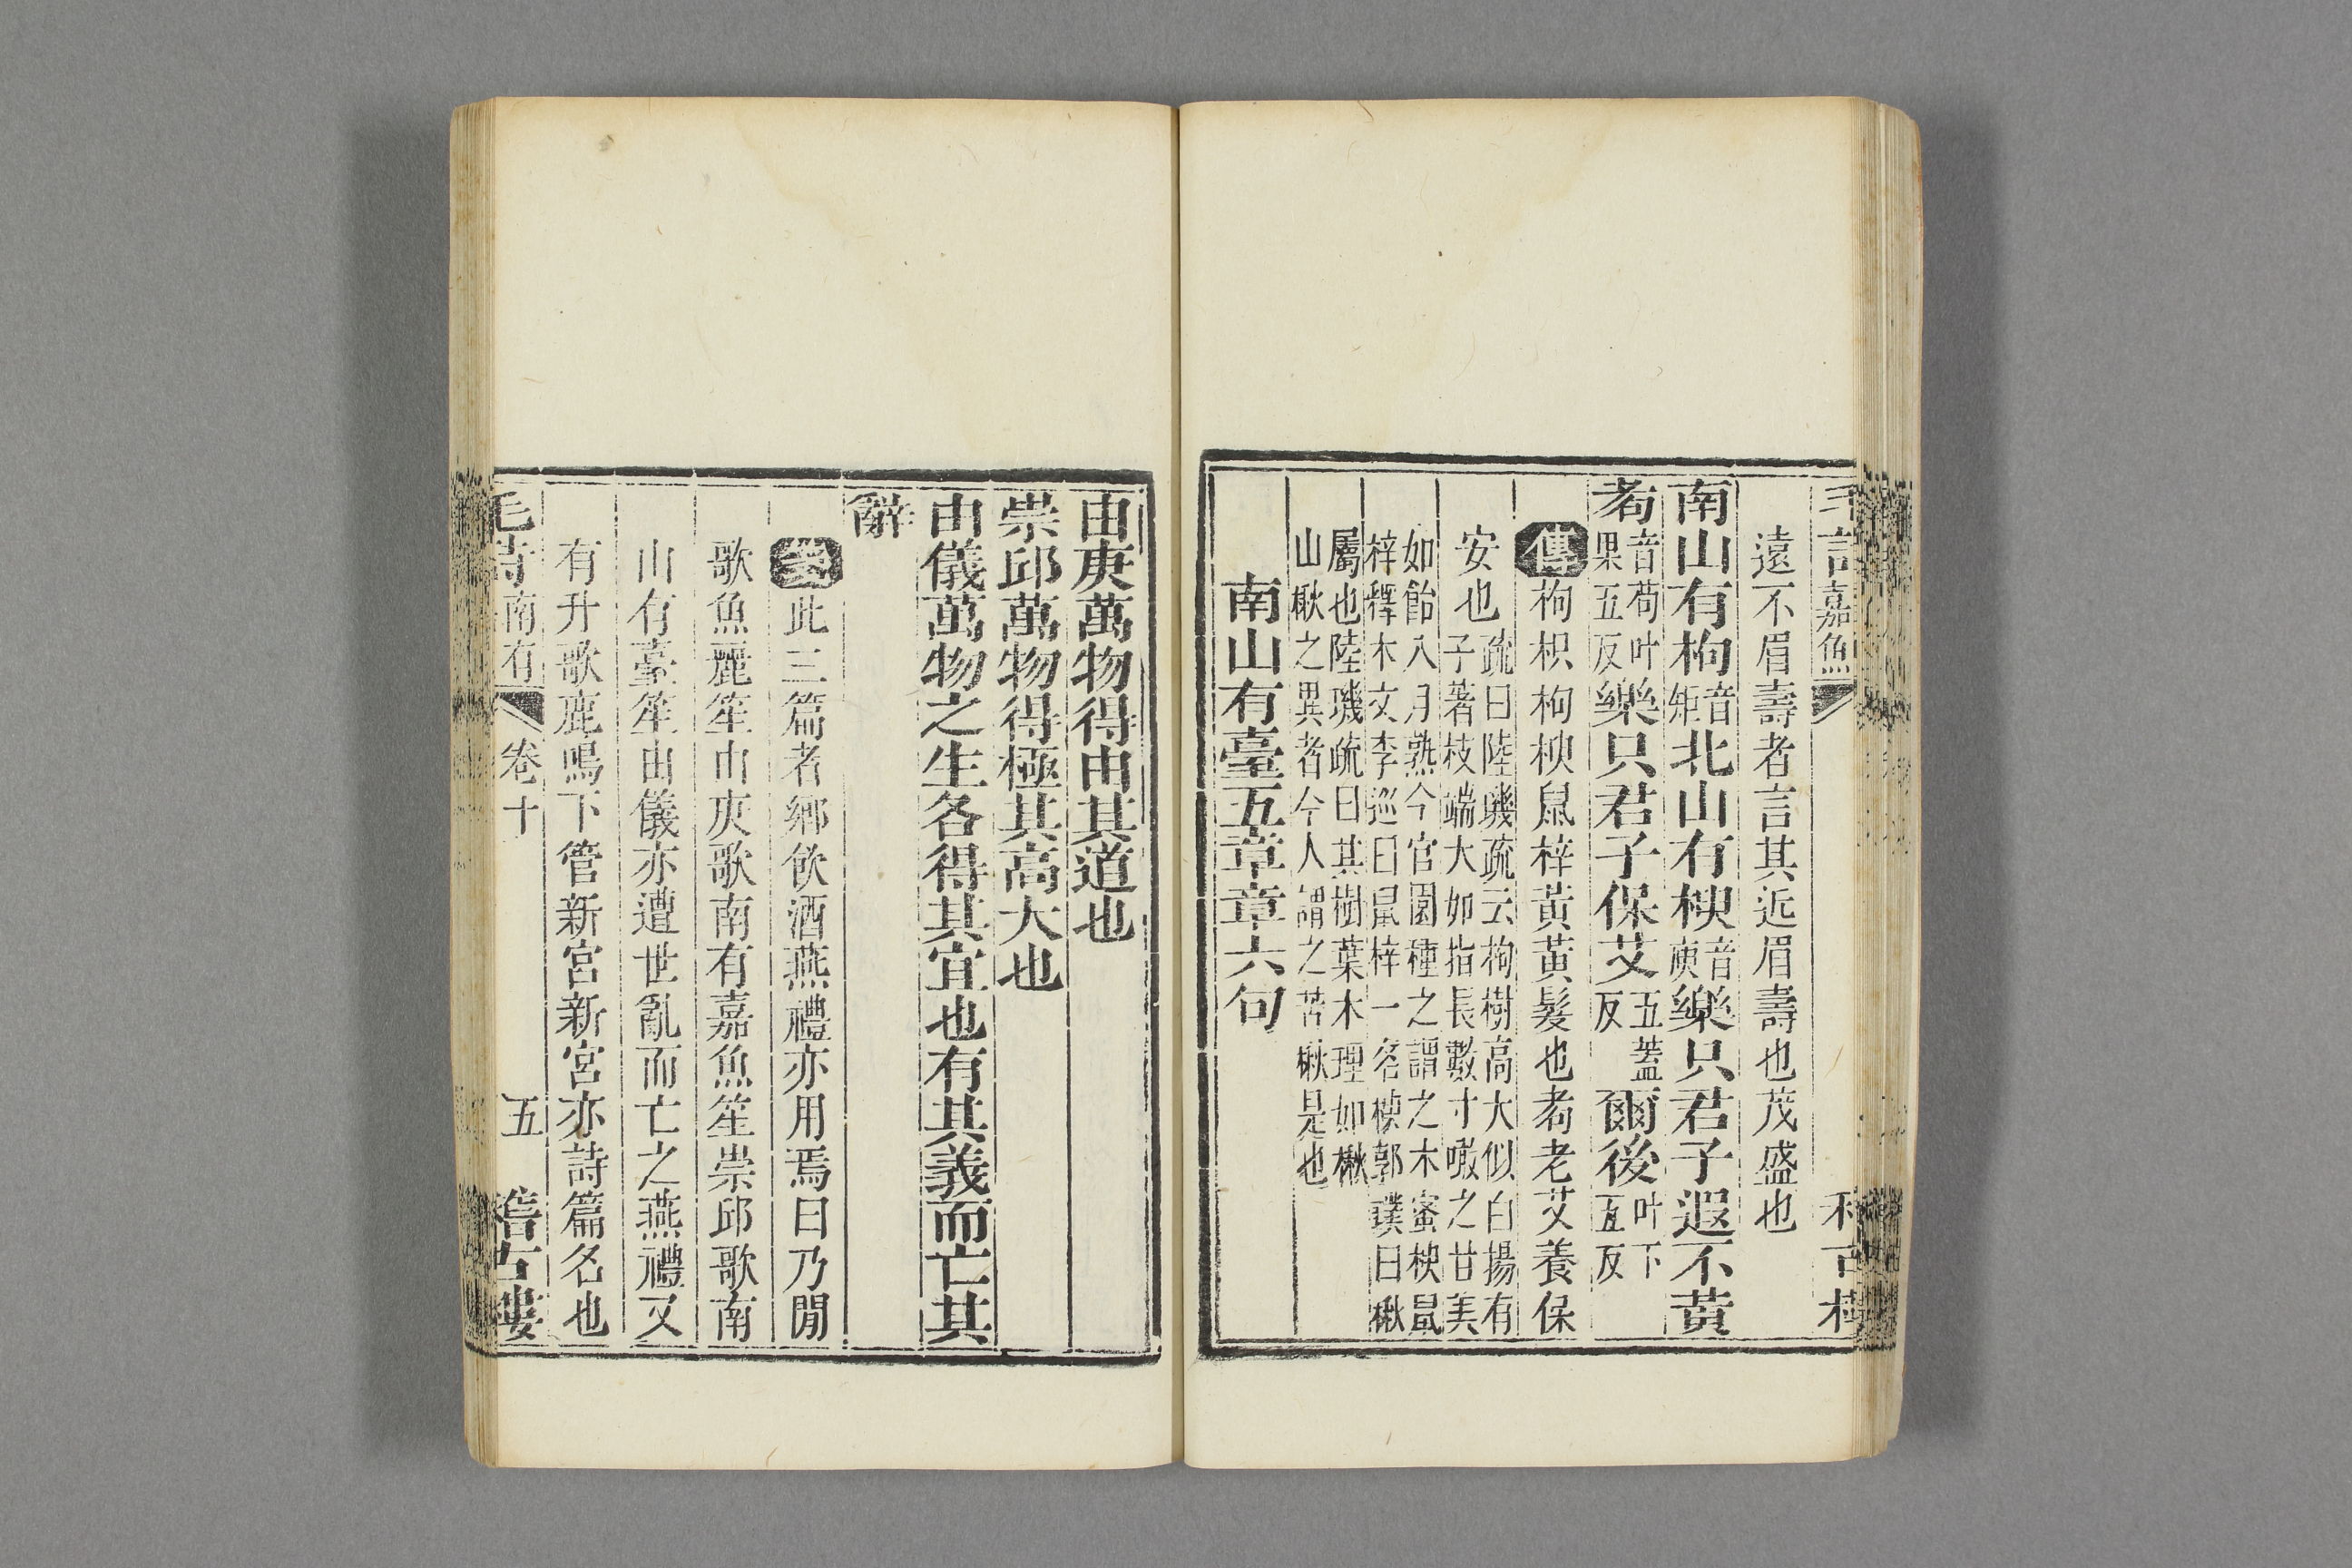 毛詩嘉魚
遠不眉壽者言其近眉壽也茂盛也
南山有枸音矩北山有楰音庾樂只君子遐不黃
耇音苟叶果五反樂只君子保艾五葢反爾後叶下五反
傳枸枳枸楰鼠梓黃黃髮也耇老艾養保
安也疏曰陸璣疏云枸樹高大似白揚有子著枝端大如指長數寸噉之甘美
如飴八月熟今官園種之謂之木蜜楰鼠梓釋木文李巡曰鼠梓一名楰郭璞曰楸
屬也陸璣疏曰其樹葉木理如楸山楸之異者今人謂之苦楸是也
南山有臺五章章六句
由庚萬物得由其道也
崇邱萬物得極其高大也
由儀萬物之生各得其宜也有其義而亡其
辭
箋此三篇者鄉飲酒燕禮亦用焉曰乃閒
歌魚麗笙由庚歌南有嘉魚笙崇邱歌南
山有臺笙由儀亦遭世亂而亡之燕禮又
有升歌鹿鳴下管新宮新宮亦詩篇名也
毛詩南有 卷十 五 稽古樓